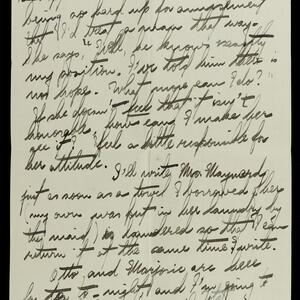 being so hard up for amusement
that I'd treat a man that way.
She says, "Well, he knows exactly
my position. I've told him there is
no hope. What more can I do?"
If she doesn't feel that it isn't
honorable, how can I make her
see it? I feel a little responsible for
her attitude.
I'll write Mrs. Maynard
just as soon as a towel I borrowed of her
my own was put in her laundry by
the maid) is laundered so that I can
return it at the same time I write.
Otto and Marjorie are here
for to-night and I'm going to